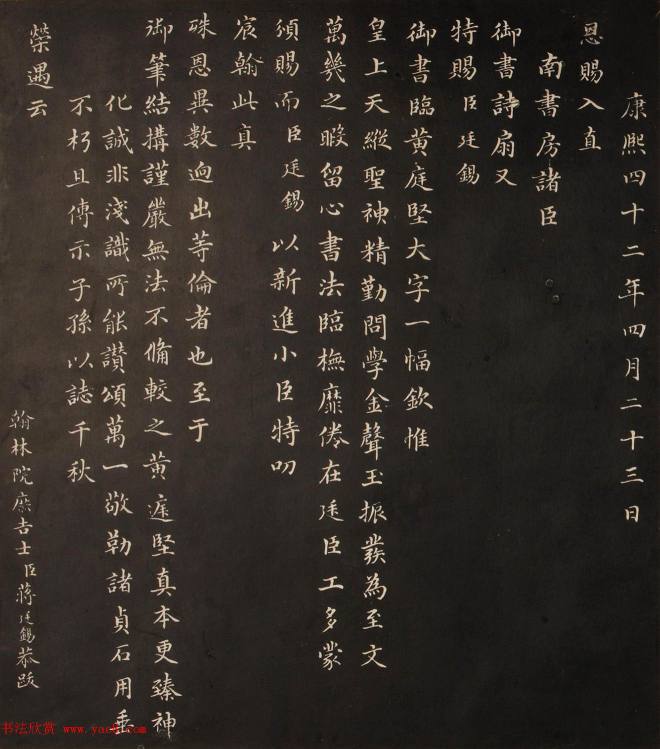 康熙四十二年四月二十三日
恩賜入直
南書房諸臣
御書詩扇又
特賜臣廷錫
御書臨黃庭堅大字一幅欽惟
皇上天縱聖神精勤問學金聲玉振發為至文
萬幾之暇留心書法臨橅靡倦在廷臣工多蒙
頒賜而臣廷錫以新進小臣特叨
宸翰此真
殊恩異數迥出等倫者也至于
御筆結搆謹嚴無法不備較之黃庭堅真本更臻神
化誠非淺識所能讚頌萬一敬勒諸貞石用垂
不朽且傳示子孫以誌千秋
榮遇云
翰林院庶吉士臣蔣廷錫恭跋
书法欣赏 www.yac8.com